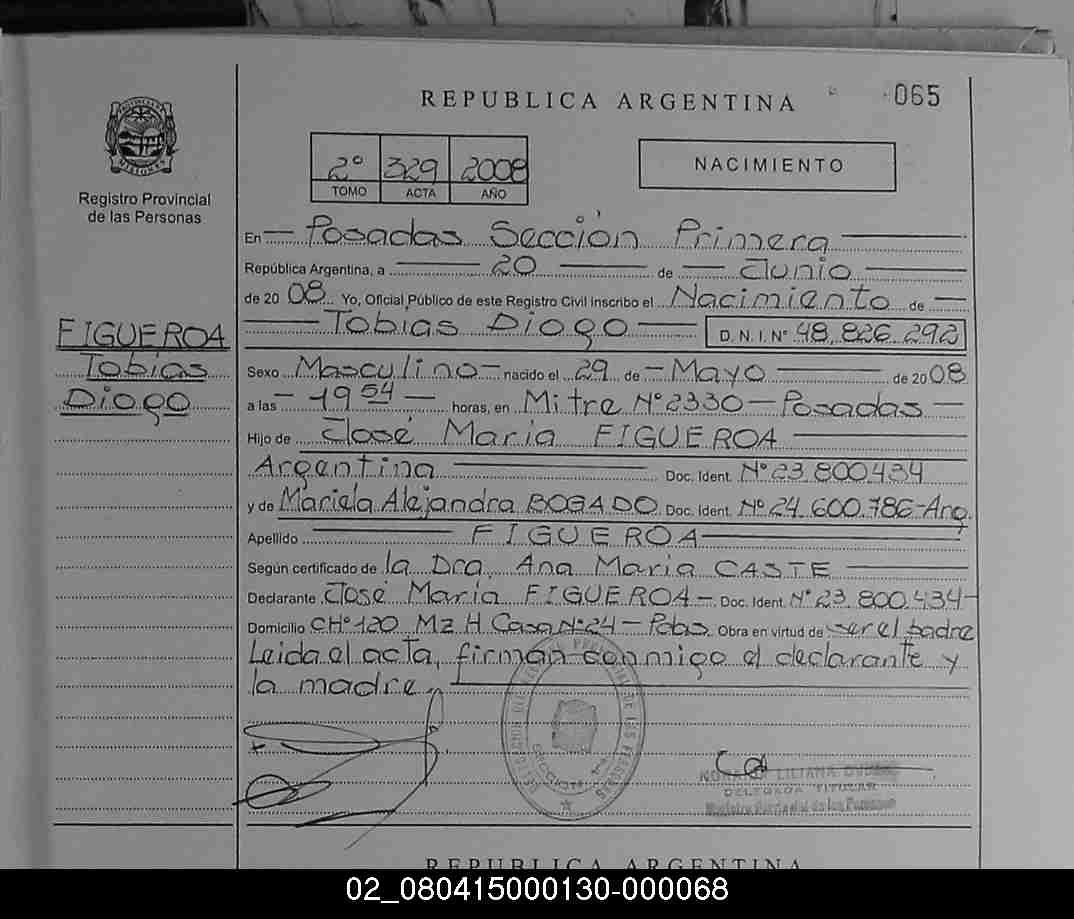 REPUBLICA ARGENTINA
065
2° 329 2008
TOMO ACTA AÑO
NACIMIENTO
Registro Provincial
de las Personas
En Posadas Sección Primera
República Argentina, a 20 de Junio
de 2008 Yo, Oficial Público de este Registro Civil inscribo el Nacimiento de
Tobías Diogo D.N.I.Nº 48.826.292
FIGUEROA
Tobías
Diogo
Sexo Masculino nacido el 29 de Mayo de 2008
a las 19 54 horas, en Mitre Nº 2330 - Posadas
Hijo de José María FIGUEROA
Argentina Doc. Ident. Nº 23.800.434
y de Mariela Alejandra BOGADO Doc. Ident. Nº 24.600.786-Arg.
Apellido FIGUEROA
Según certificado de la Dra. Ana María CASTE
Declarante José María FIGUEROA - Doc. Ident. Nº 23.800.434-
Domicilio CHº 120 Mz H Casa Nº 24 - Pdas. Obra en virtud de ser el padre
Leida el acta, firman conmigo el declarante y
la madre.
LILIANA
DELEGADA TITULAR
Registro Provincial de las Personas
REPUBLICA ARGENTINA
02_080415000130-000068